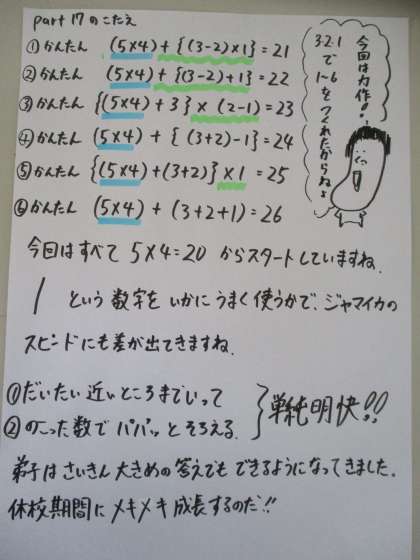 part 17 のこたえ
①かんたん (5×4)+{(3-2)×1}=21
②かんたん (5×4)+{(3-2)+1}=22
③かんたん {(5×4)+3}×(2-1)=23
④かんたん (5×4)+{(3+2)-1}=24
⑤かんたん {(5×4)+(3+2)}×1=25
⑥かんたん (5×4)+(3+2+1)=26
今回は力作!!
3.2.1
で
1~6
をつくれたからねょ
今回はすべて 5×4=20 からスタートしていますね.
1 という数字を いかに うまく 使うかで、ジャマイカの
スピードにも差が出てきますね.
①だいたい 近いところまでいって
②のこった数で パパッとそろえる.
単純明快!!
弟子はさいきん大きめの答えでも できるようになってきました.
休校期間に メキメキ 成長するのだ!!